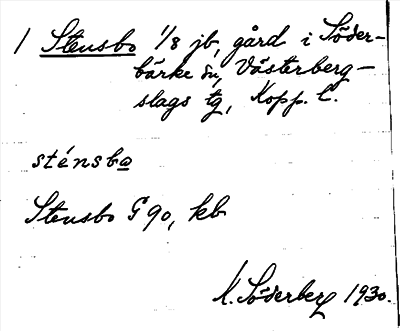 1 Stensbo 1/8 jb, gård i Söder-
bärke sn, Västerberg-
slags tg, Kopp. l.
sténsbo
Stensbo G 90, kb
K. Söderberg 1930.